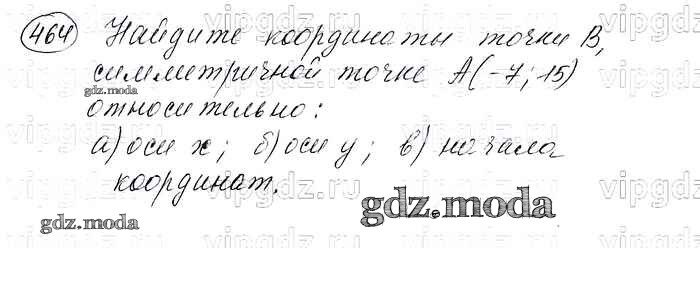 464 Найдите координаты точки В,
симметричной точке А(-7; 15)
gdz.moda
относительно:
а) оси х; б) оси у; в) начала
координат.
gdz.moda
gdz.moda
vipgdz.ru